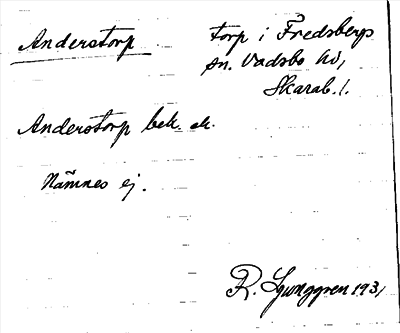 Anderstorp torp i Fredsbergs
sn. Vadsbo hd,
Skarab. l.
Anderstorp bek. ek.
Nämnes ej.
R. Ljunggren 1931